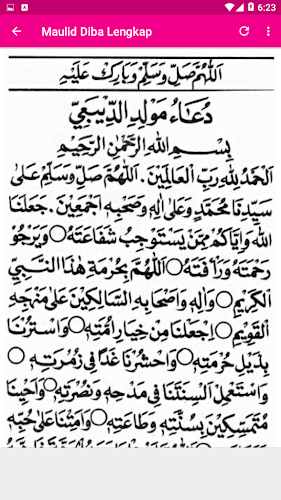 6:23
Maulid Diba Lengkap
اَللّٰهُمَّ صَلِّ وَسَلِّمْ وَبَارِكْ عَلَيْهِ
دُعَاءُ مَوْلِدِ الدِّيْبَعِيِّ
بِسْمِ اللهِ الرَّحْمٰنِ الرَّحِيْمِ
اَلْحَمْدُ لِلّٰهِ رَبِّ الْعَالَمِيْنَ. اَللّٰهُمَّ صَلِّ وَسَلِّمْ عَلٰى
سَيِّدِنَا مُحَمَّدٍ وَعَلٰى اٰلِهِ وَصَحْبِهِ اَجْمَعِيْنَ. جَعَلَنَا
اللهُ وَاِيَّاكُمْ مِمَّنْ يَسْتَوْجِبُ شَفَاعَتَهُ ○ وَيَرْجُوْ
رَحْمَتَهُ وَرَأْفَتَهُ ○ اَللّٰهُمَّ بِحُرْمَةِ هٰذَا النَّبِيِّ
الْكَرِيْمِ ○ وَاٰلِهِ وَاَصْحَابِهِ السَّالِكِيْنَ عَلٰى مَنْهَجِهِ
الْقَوِيْمِ ○ اِجْعَلْنَا مِنْ خِيَارِ اُمَّتِهِ ○ وَاسْتُرْنَا
بِذَيْلِ حُرْمَتِهِ ○ وَاحْشُرْنَا غَدًا فِيْ زُمْرَتِهِ ○
وَاسْتَعْمِلْ اَلْسِنَتَنَا فِيْ مَدْحِهِ وَنُصْرَتِهِ ○ وَاَحْيِنَا
مُتَمَسِّكِيْنَ بِسُنَّتِهِ وَطَاعَتِهِ ○ وَاَمِتْنَا عَلٰى حُبِّهِ